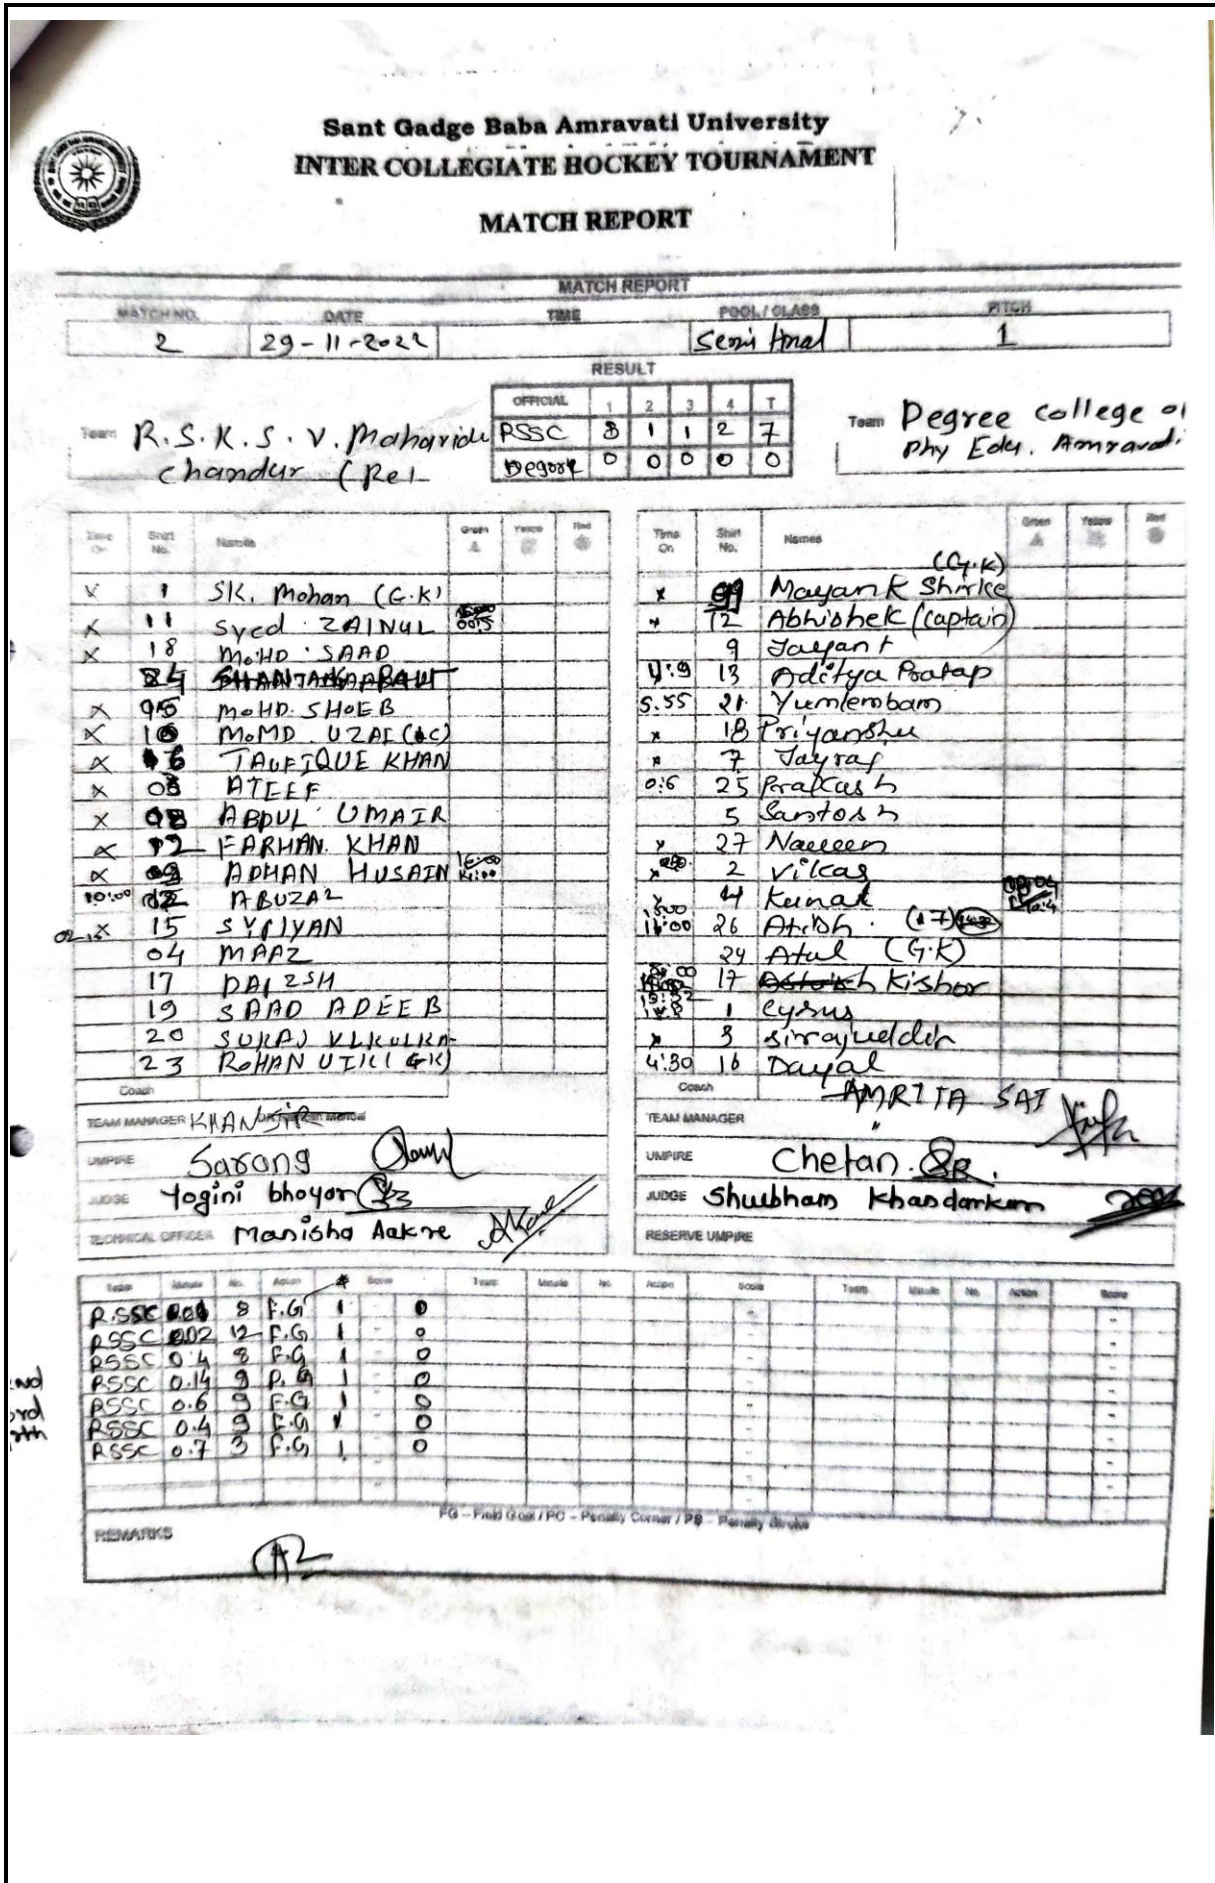 Sant Gadge Baba Amravati University
INTER COLLEGIATE HOCKEY TOURNAMENT
MATCH REPORT
MATCH REPORT
MATCH NO. DATE TIME POOL / CLASS PITCH
2 29-11-2022 Semi final 1
RESULT
OFFICIAL 1 2 3 4 T
RSSC 3 1 1 2 7
0 0 0 0 0
Team R.S.K.S.V. Mahavidu
Chandur (Rel
Team Degree college of
Phy Edu. Amravati
Time On Shirt No. Names Green Yellow Red
x 1 SK. Mohan (G.K)
x 11 Syed ZAINUL
x 18 MOHD. SAAD
x 95 MOHD. SHOEB
x 10 MOMD. UZAI
x 6 TAUFIQUE KHAN
x 08 ATEEF
x ABDUL UMAIR
x 12 FARHAN KHAN
x ADHAN HUSAIN
10:00 ABUZAR
x 15
04 MAAZ
17
19 SAAD ADEEB
20 SURAJ
23 ROHAN
Coach
TEAM MANAGER KHAN
UMPIRE Sarang
JUDGE Yogini bhoyar
TECHNICAL OFFICER Manisha Aakre
Time On Shirt No. Names Green Yellow Red
(G.K)
x Mayank Shirke
x 12 Abhishek (captain)
9 Jayant
13 Aditya Pratap
5.55 21 Yumlembam
x 18 Priyanshu
x 7 Jayraj
0:6 25 Prakash
5 Santosh
x 27 Naveen
x 2 Vilkas
4 Kunal
26
24 Atul (G.K)
17 Kishor
1 Cyrus
x 3 Sirrajueddin
4:30 16 Dayal
Coach AMRITA SAI
TEAM MANAGER "
UMPIRE Chetan
JUDGE Shubham Khandarkar
RESERVE UMPIRE
Team Minute No. Action Score Team Minute No. Action Score Team Minute No. Action Score
R.SSC 8 F.G 1 - 0
RSSC 12 F.G 1 - 0
RSSC 0.4 8 F.G 1 - 0
RSSC 0.14 9 P.G 1 - 0
RSSC 0.6 9 F.G 1 - 0
RSSC 0.4 9 F.G 1 - 0
RSSC 0.7 3 F.G 1 - 0
FG – Field Goal / PC – Penalty Corner / PS – Penalty Stroke
REMARKS